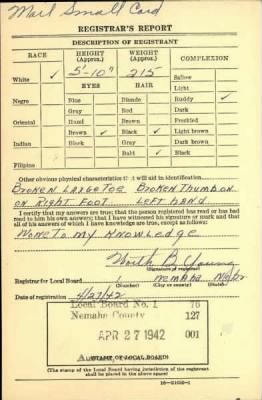 Mail Small Card
REGISTRAR'S REPORT
DESCRIPTION OF REGISTRANT
RACE HEIGHT (Approx.) WEIGHT (Approx.) COMPLEXION
White ✓ 5'-10" 215 Sallow
EYES HAIR Light
Negro Blue Blonde Ruddy ✓
Gray Red Dark
Oriental Hazel Brown Freckled
Brown ✓ Black ✓ Light brown
Indian Black Gray Dark brown
Bald ✓ Black
Filipino
Other obvious physical characteristics that will aid in identification
Broken Large Toe Broken Thumb on
on Right Foot Left hand
I certify that my answers are true; that the person registered has read or has had
read to him his own answers; that I have witnessed his signature or mark and that
all of his answers of which I have knowledge are true, except as follows:
None to my Knowledge
B Young
(Signature of registrar)
Registrar for Local Board 1 Nemaha Nebr
(Number) (City or county) (State)
Date of registration 4/27/42
Local Board No. 1 76
Nemaha County 127
APR 27 1942 001
(STAMP OF LOCAL BOARD)
(The stamp of the Local Board having jurisdiction of the registrant
shall be placed in the above space.)